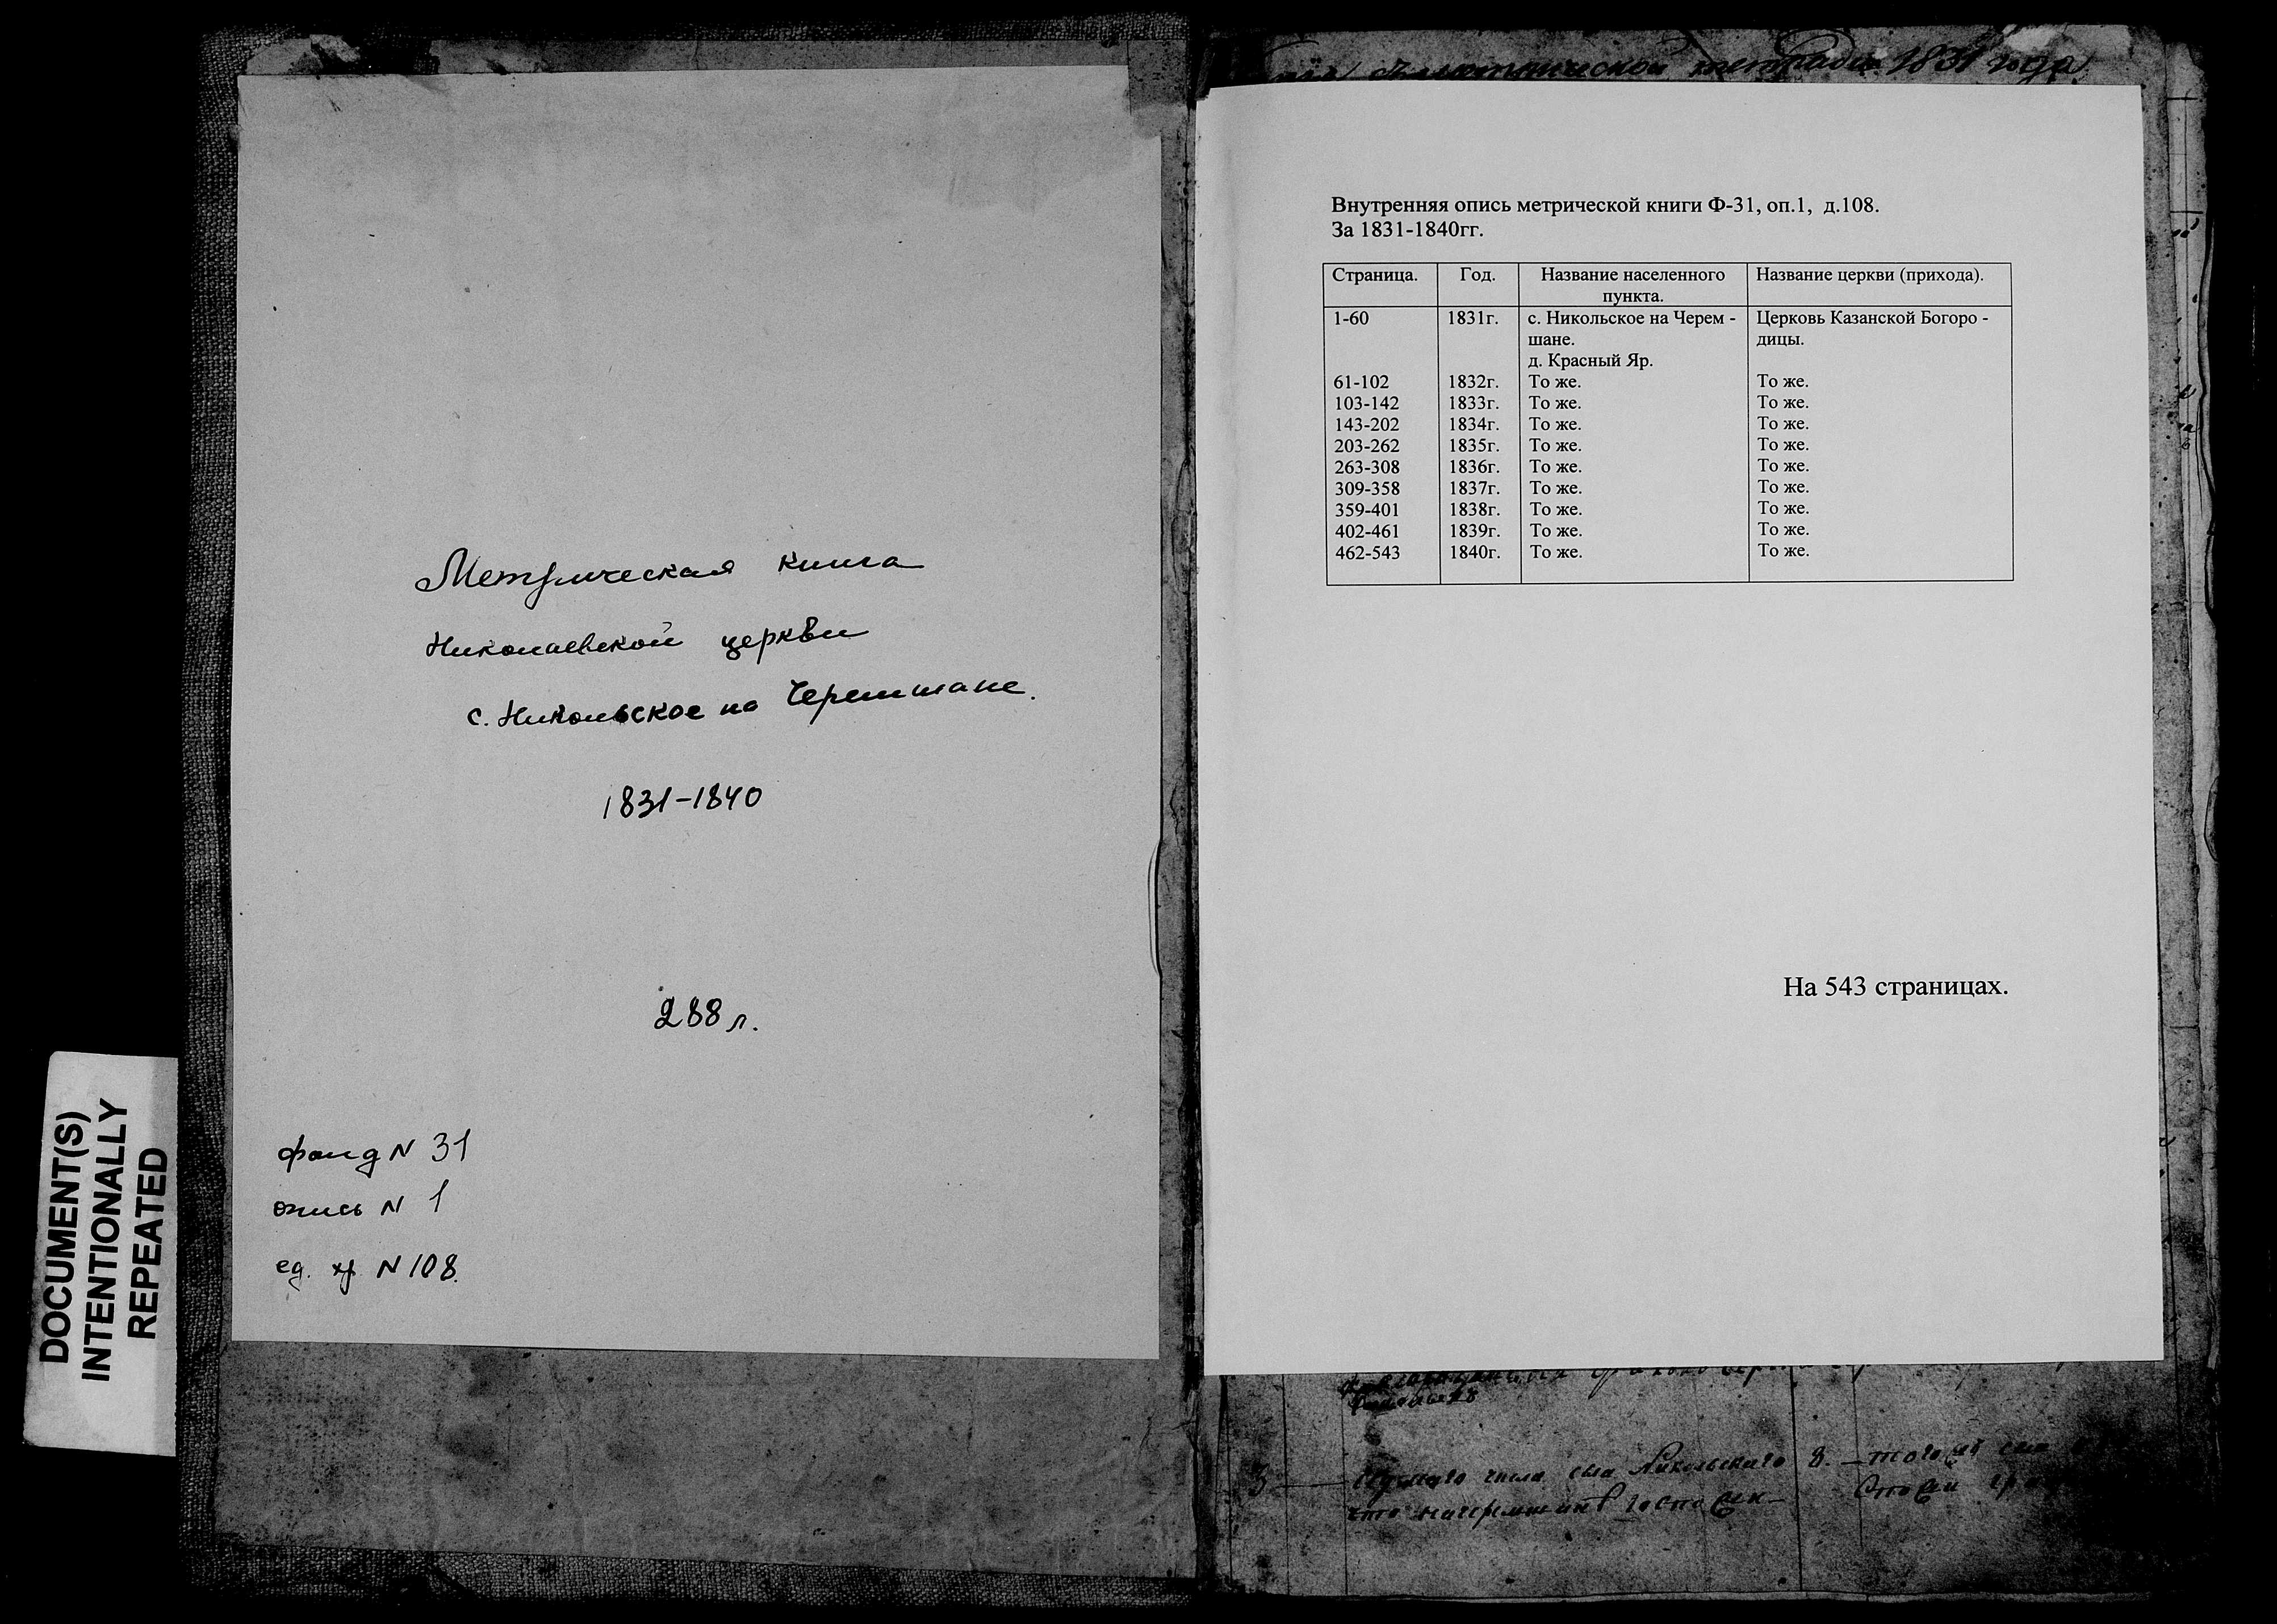 Метрическая книга
Николаевской церкви
с. Никольское на Черемшане.
1831-1840
288 л.
фонд N 31
опись N 1
ед. хр. N 108.
DOCUMENT(S)
INTENTIONALLY
REPEATED
тетради 1831 года
Внутренняя опись метрической книги Ф-31, оп.1, д.108.
За 1831-1840гг.
Страница. Год. Название населенного Название церкви (прихода).
пункта.
1-60 1831г. с. Никольское на Черем - Церковь Казанской Богоро -
шане. дицы.
д. Красный Яр.
61-102 1832г. То же. То же.
103-142 1833г. То же. То же.
143-202 1834г. То же. То же.
203-262 1835г. То же. То же.
263-308 1836г. То же. То же.
309-358 1837г. То же. То же.
359-401 1838г. То же. То же.
402-461 1839г. То же. То же.
462-543 1840г. То же. То же.
На 543 страницах.
3 числа села Никольскаго 8.